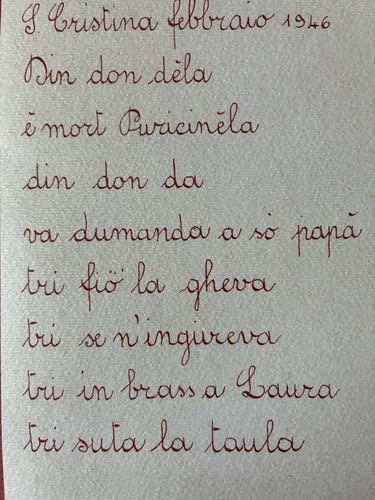 S. Cristina febbraio 1946
Din don dēla
ē mort Puricinēla
din don da
va dumanda a sò papā
tri fiö la gheva
tri se n'ingureva
tri in brass a Laura
tri suta la taula